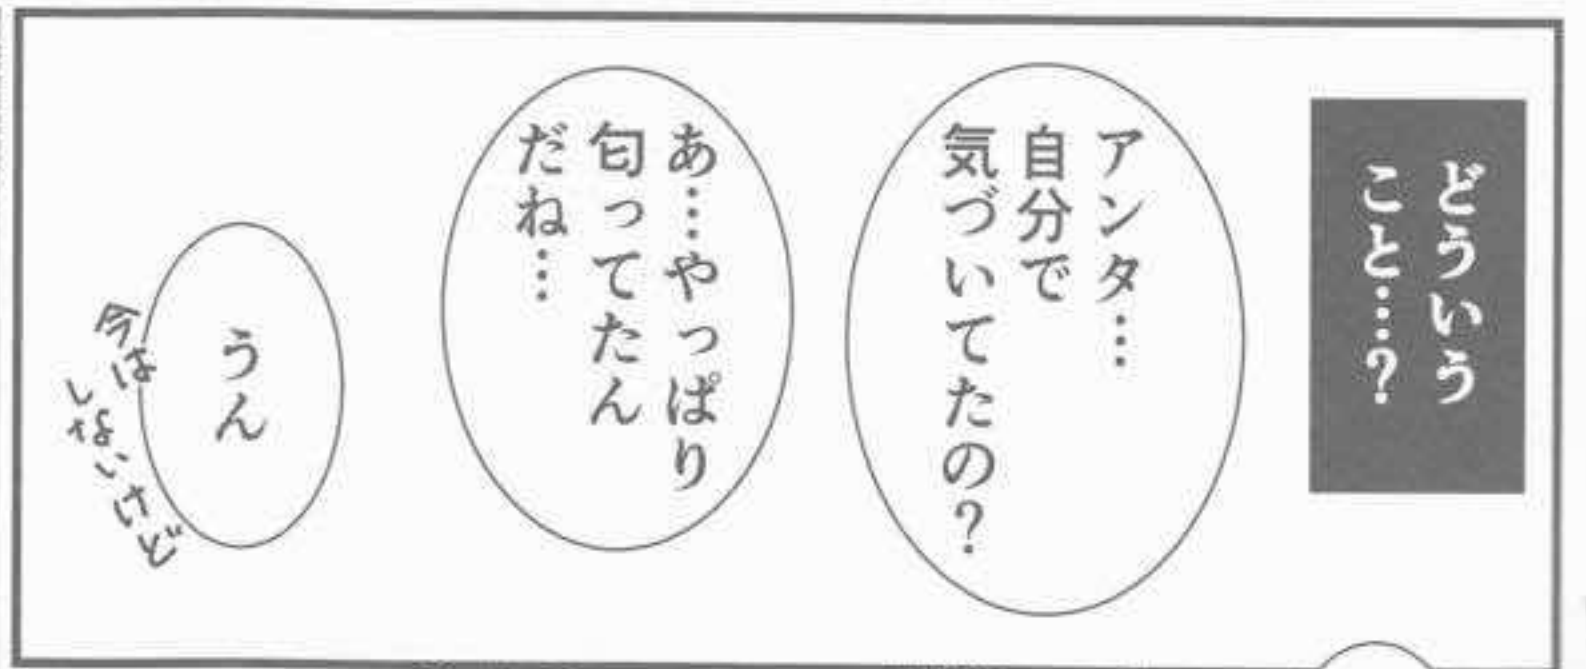 どういう
こと…?
アンタ…
自分で
気づいてたの?
あ…やっぱり
匂ってたん
だね…
うん
今は
しないけど